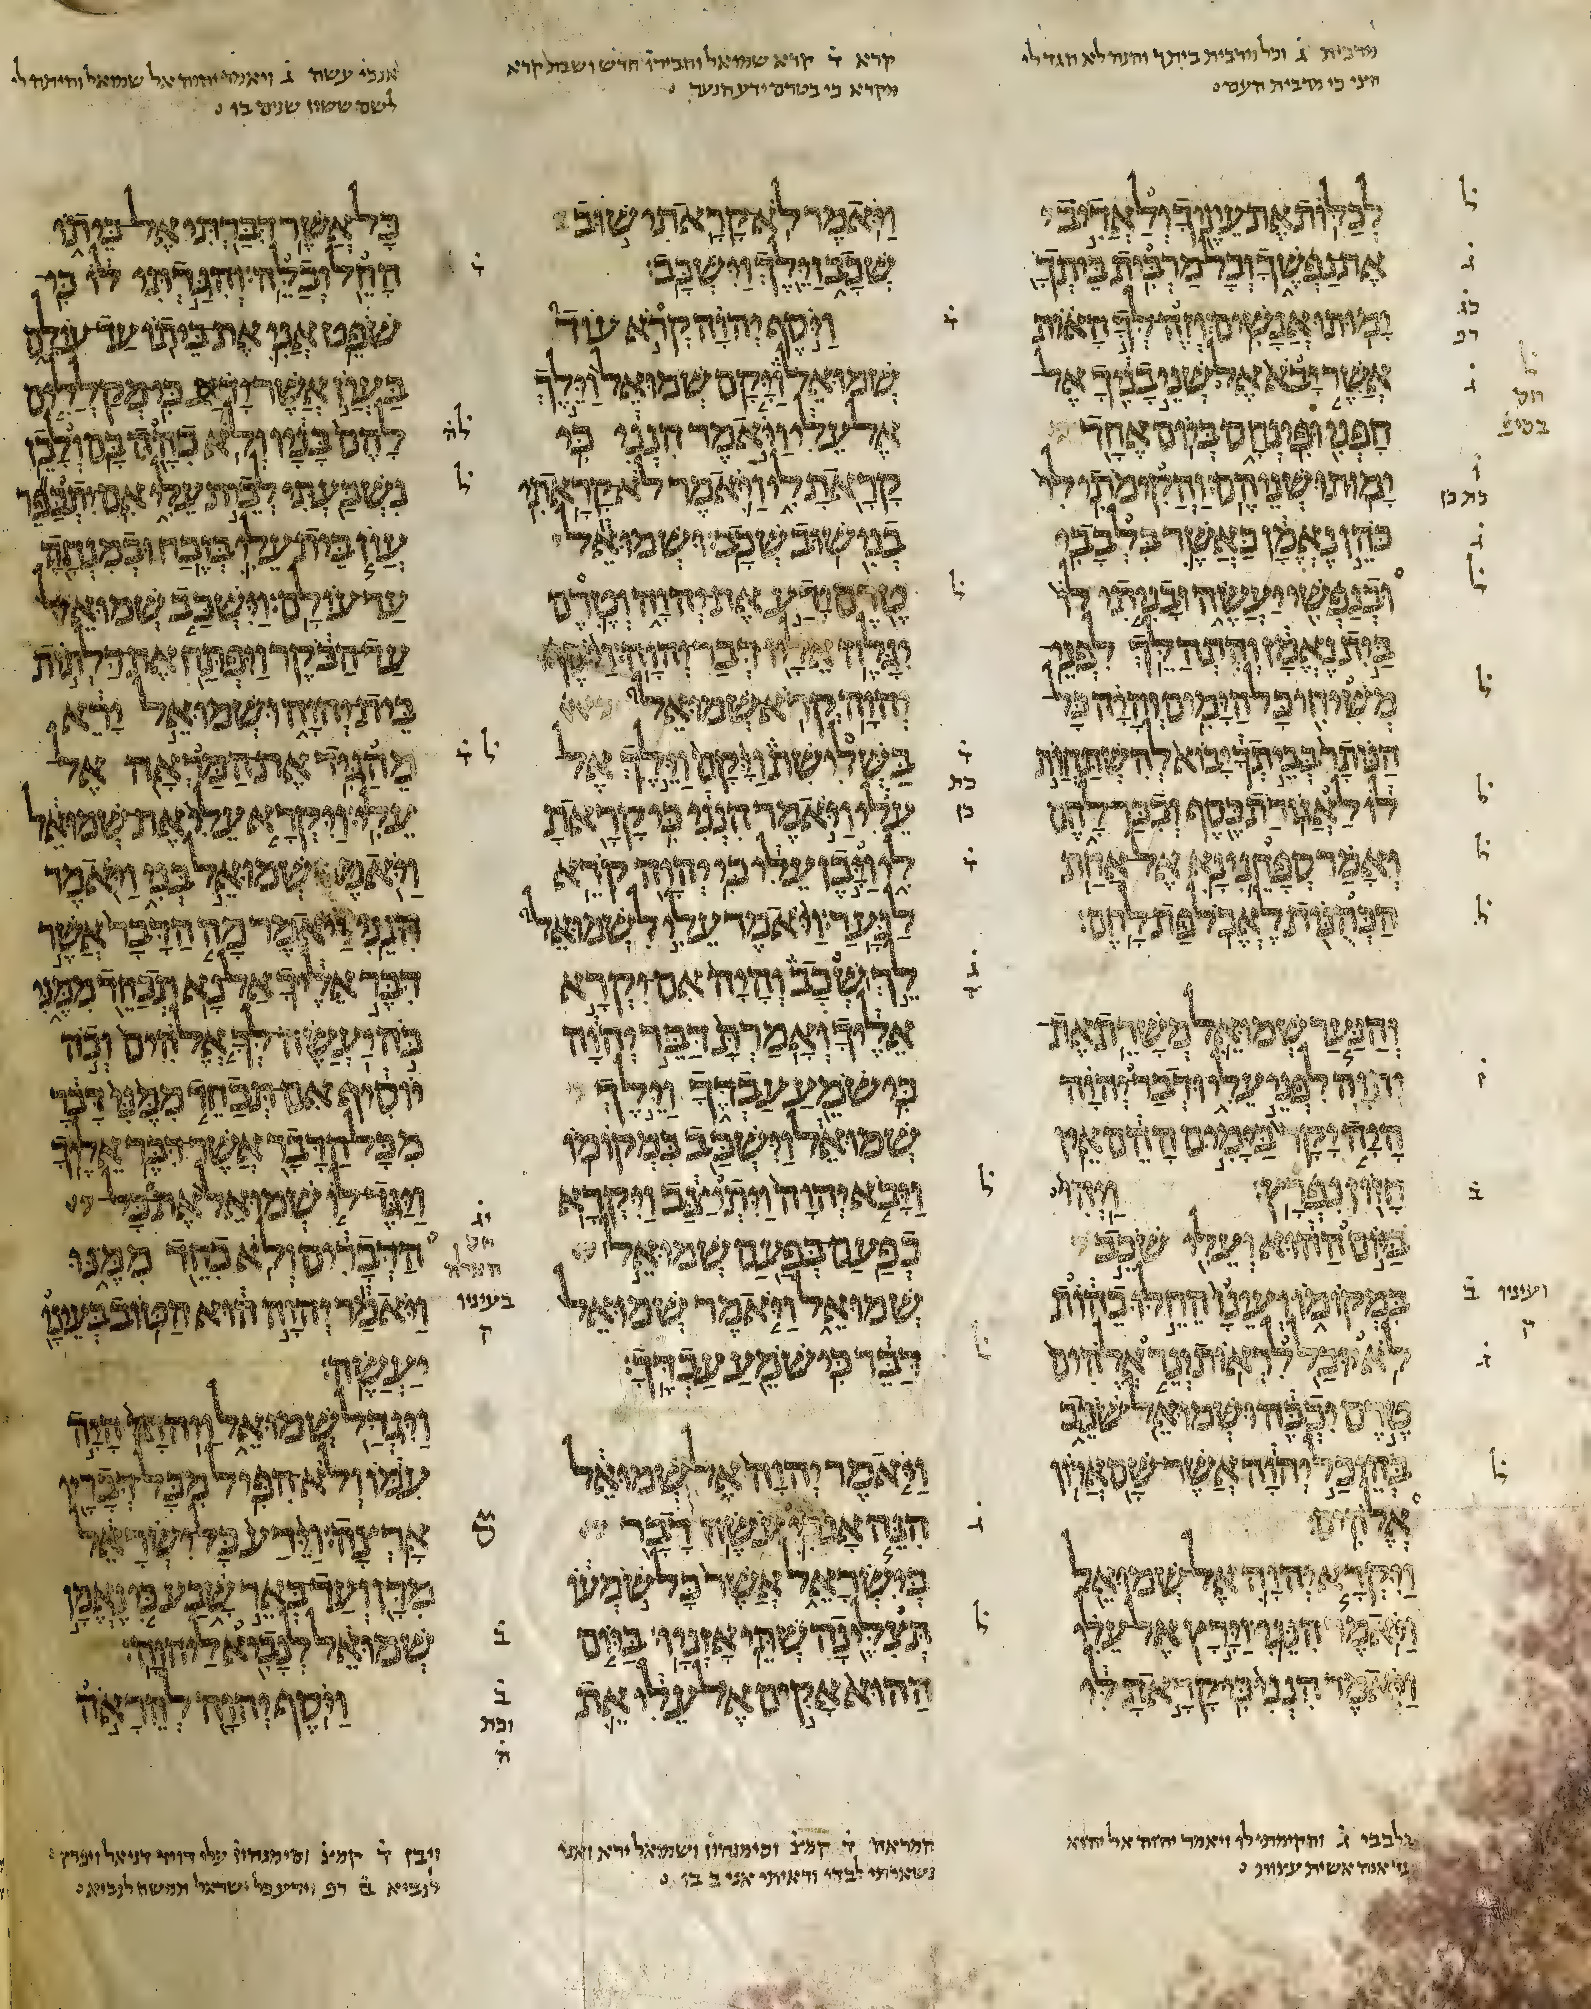 מרבית ג וכל מרבית ביתך והנה לא הגד לי
חצי כי מרבית העם
לְכַלּוֹת אֶת עֵינֶיךָ וְלַאֲדִיב
אֶת נַפְשֶׁךָ וְכָל מַרְבִּית בֵּיתְךָ
יָמוּתוּ אֲנָשִׁים׃ וְזֶה לְּךָ הָאוֹת
אֲשֶׁר יָבֹא אֶל שְׁנֵי בָנֶיךָ אֶל
חָפְנִי וּפִינְחָס בְּיוֹם אֶחָד
יָמוּתוּ שְׁנֵיהֶם׃ וַהֲקִימֹתִי לִי
כֹּהֵן נֶאֱמָן כַּאֲשֶׁר בִּלְבָבִי
וּבְנַפְשִׁי יַעֲשֶׂה וּבָנִיתִי לוֹ
בַּיִת נֶאֱמָן וְהִתְהַלֵּךְ לִפְנֵי
מְשִׁיחִי כָּל הַיָּמִים׃ וְהָיָה כָּל
הַנּוֹתָר בְּבֵיתְךָ יָבוֹא לְהִשְׁתַּחֲוֺת
לוֹ לַאֲגוֹרַת כֶּסֶף וְכִכַּר לָחֶם
וְאָמַר סְפָחֵנִי נָא אֶל אַחַת
הַכְּהֻנּוֹת לֶאֱכֹל פַּת לָחֶם׃
וְהַנַּעַר שְׁמוּאֵל מְשָׁרֵת אֶת
יְהוָה לִפְנֵי עֵלִי וּדְבַר יְהוָה
הָיָה יָקָר בַּיָּמִים הָהֵם אֵין
חָזוֹן נִפְרָץ׃ וַיְהִי
בַּיּוֹם הַהוּא וְעֵלִי שֹׁכֵב
בִּמְקוֹמוֹ וְעֵינָו הֵחֵלּוּ כֵהוֹת
לֹא יוּכַל לִרְאוֹת׃ וְנֵר אֱלֹהִים
טֶרֶם יִכְבֶּה וּשְׁמוּאֵל שֹׁכֵב
בְּהֵיכַל יְהוָה אֲשֶׁר שָׁם אֲרוֹן
אֱלֹהִים׃
וַיִּקְרָא יְהוָה אֶל שְׁמוּאֵל
וַיֹּאמֶר הִנֵּנִי׃ וַיָּרָץ אֶל עֵלִי
וַיֹּאמֶר הִנְנִי כִּי קָרָאתָ לִּי
בלבבי ג והקימתי לי ויאמר יהוה אל יהוא
קרא ד קרא שמואל וחבירו חדש ושבת קרא
מקרא כי בטרם ידע הנער
וַיֹּאמֶר לֹא קָרָאתִי שׁוּב
שְׁכָב וַיֵּלֶךְ וַיִּשְׁכָּב׃
וַיֹּסֶף יְהוָה קְרֹא עוֹד
שְׁמוּאֵל וַיָּקָם שְׁמוּאֵל וַיֵּלֶךְ
אֶל עֵלִי וַיֹּאמֶר הִנְנִי כִּי
קָרָאתָ לִי וַיֹּאמֶר לֹא קָרָאתִי
בְנִי שׁוּב שְׁכָב׃ וּשְׁמוּאֵל
טֶרֶם יָדַע אֶת יְהוָה וְטֶרֶם
יִגָּלֶה אֵלָיו דְּבַר יְהוָה׃ וַיֹּסֶף
יְהוָה קְרֹא שְׁמוּאֵל
בַּשְּׁלִישִׁת וַיָּקָם וַיֵּלֶךְ אֶל
עֵלִי וַיֹּאמֶר הִנְנִי כִּי קָרָאתָ
לִי וַיָּבֶן עֵלִי כִּי יְהוָה קֹרֵא
לַנָּעַר׃ וַיֹּאמֶר עֵלִי לִשְׁמוּאֵל
לֵךְ שְׁכָב וְהָיָה אִם יִקְרָא
אֵלֶיךָ וְאָמַרְתָּ דַּבֵּר יְהוָה
כִּי שֹׁמֵעַ עַבְדֶּךָ וַיֵּלֶךְ
שְׁמוּאֵל וַיִּשְׁכַּב בִּמְקוֹמוֹ׃
וַיָּבֹא יְהוָה וַיִּתְיַצַּב וַיִּקְרָא
כְפַעַם בְּפַעַם שְׁמוּאֵל
שְׁמוּאֵל וַיֹּאמֶר שְׁמוּאֵל
דַּבֵּר כִּי שֹׁמֵעַ עַבְדֶּךָ׃
וַיֹּאמֶר יְהוָה אֶל שְׁמוּאֵל
הִנֵּה אָנֹכִי עֹשֶׂה דָבָר
בְּיִשְׂרָאֵל אֲשֶׁר כָּל שֹׁמְעוֹ
תְּצִלֶּינָה שְׁתֵּי אָזְנָיו׃ בַּיּוֹם
הַהוּא אָקִים אֶל עֵלִי אֵת
המראה ד קמצ וסימנהון ושמואל ירא ואני
נשארתי לבדי וראיתי אני ב בו
אנכי עשה ג ויאמר יהוה אל שמואל והיתה לי
לשם ששון שנים בו
כָּל אֲשֶׁר דִּבַּרְתִּי אֶל בֵּיתוֹ
הָחֵל וְכַלֵּה׃ וְהִגַּדְתִּי לוֹ כִּי
שֹׁפֵט אֲנִי אֶת בֵּיתוֹ עַד עוֹלָם
בַּעֲוֺן אֲשֶׁר יָדַע כִּי מְקַלְלִים
לָהֶם בָּנָיו וְלֹא כִהָה בָּם׃ וְלָכֵן
נִשְׁבַּעְתִּי לְבֵית עֵלִי אִם יִתְכַּפֵּר
עֲוֺן בֵּית עֵלִי בְּזֶבַח וּבְמִנְחָה
עַד עוֹלָם׃ וַיִּשְׁכַּב שְׁמוּאֵל
עַד הַבֹּקֶר וַיִּפְתַּח אֶת דַּלְתוֹת
בֵּית יְהוָה וּשְׁמוּאֵל יָרֵא
מֵהַגִּיד אֶת הַמַּרְאָה אֶל
עֵלִי׃ וַיִּקְרָא עֵלִי אֶת שְׁמוּאֵל
וַיֹּאמֶר שְׁמוּאֵל בְּנִי וַיֹּאמֶר
הִנֵּנִי׃ וַיֹּאמֶר מָה הַדָּבָר אֲשֶׁר
דִּבֶּר אֵלֶיךָ אַל נָא תְכַחֵד מִמֶּנִּי
כֹּה יַעֲשֶׂה לְּךָ אֱלֹהִים וְכֹה
יוֹסִיף אִם תְּכַחֵד מִמֶּנִּי דָּבָר
מִכָּל הַדָּבָר אֲשֶׁר דִּבֶּר אֵלֶיךָ׃
וַיַּגֶּד לוֹ שְׁמוּאֵל אֶת כָּל
הַדְּבָרִים וְלֹא כִחֵד מִמֶּנּוּ
וַיֹּאמַר יְהוָה הוּא הַטּוֹב בְּעֵינָו
יַעֲשֶׂה׃
וַיִּגְדַּל שְׁמוּאֵל וַיהוָה הָיָה
עִמּוֹ וְלֹא הִפִּיל מִכָּל דְּבָרָיו
אָרְצָה׃ וַיֵּדַע כָּל יִשְׂרָאֵל
מִדָּן וְעַד בְּאֵר שָׁבַע כִּי נֶאֱמָן
שְׁמוּאֵל לְנָבִיא לַיהוָה׃
וַיֹּסֶף יְהוָה לְהֵרָאֹה
ויבן ד קמצ וסימנהון עלי דויד דניאל
לנביא ב רפ וידע כל ישראל תמשח לנביא